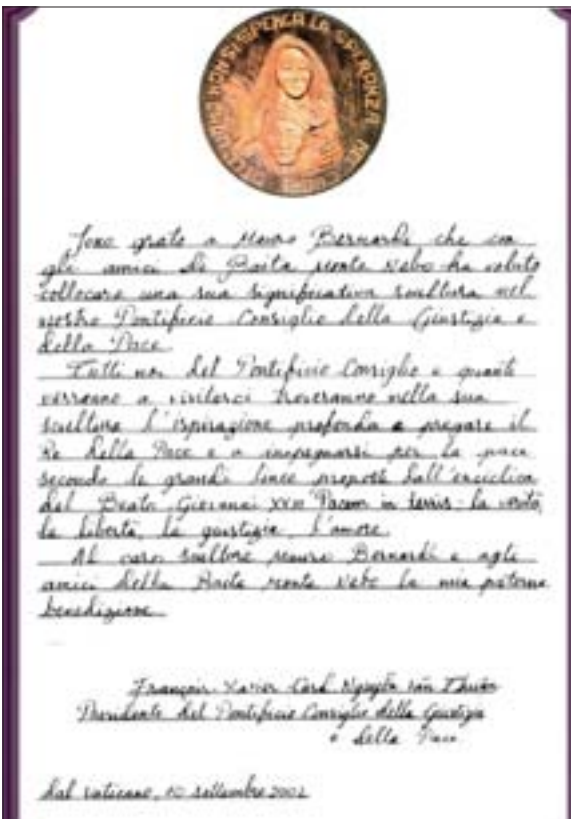 NON SI SPENGA LA SPERANZA
Sono grato a Mauro Bernardi che con
gli amici di Baita Monte Nebo ha voluto
collocare una sua significativa scultura nel
nostro Pontificio Consiglio della Giustizia e
della Pace.
Tutti noi del Pontificio Consiglio e quanti
verranno a visitarci troveranno nella sua
scultura l'ispirazione profonda a pregare il
Re della Pace e a impegnarsi per la pace
secondo le grandi linee proposte dall'enciclica
del Beato Giovanni XXIII "Pacem in terris": la verità,
la libertà, la giustizia, l'amore.
Al caro scultore Mauro Bernardi e agli
amici della Baita Monte Nebo la mia paterna
benedizione.
François-Xavier Card. Nguyễn Văn Thuận
Presidente del Pontificio Consiglio della Giustizia
e della Pace
dal Vaticano, 10 settembre 2002